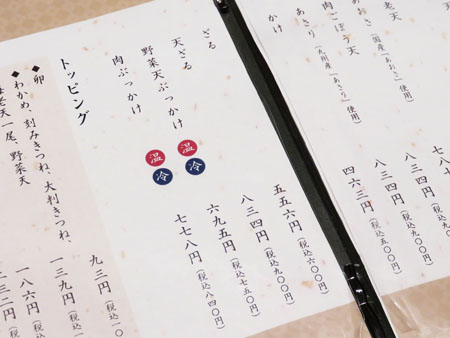 老天 八三四円(税込九〇〇円)
あおさ(国産「あおさ」使用) 八三四円(税込九〇〇円)
肉ごぼう天 八三四円(税込九〇〇円)
あさり(九州産「あさり」使用)
かけ 四六三円(税込五〇〇円)
ざる 五五六円(税込六〇〇円)
天ざる 八三四円(税込九〇〇円)
野菜天ぶっかけ 温 冷 六九五円(税込七五〇円)
肉ぶっかけ 温 冷 七七八円(税込八四〇円)
トッピング
◆卵 九三円(税込一〇
◆わかめ、刻みきつね、大判きつね、 一三九円(税込一五
海老天一尾、野菜天 一八六円(税込二〇